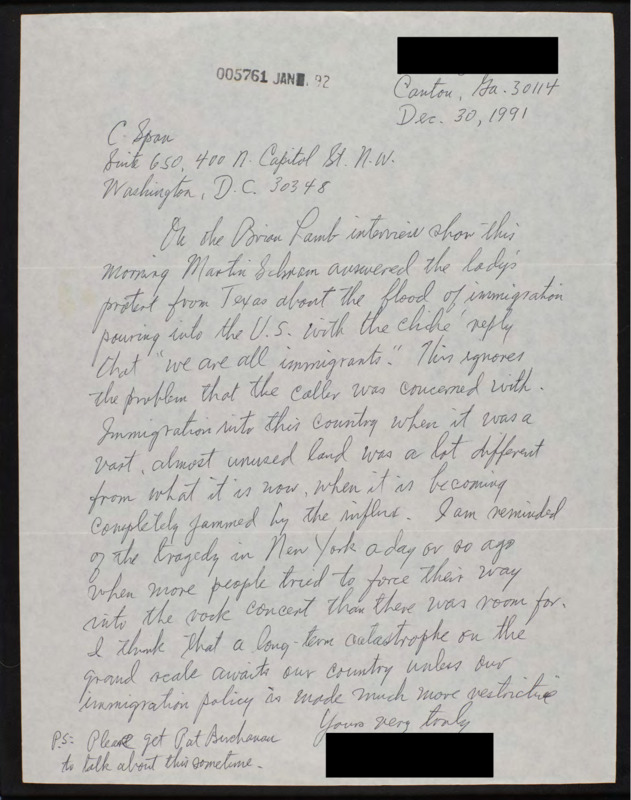 005761 JAN . 92
Canton, Ga. 30114
Dec. 30, 1991
C. Span
Suite 650, 400 N. Capitol St. N.W.
Washington, D.C. 30348
On the Brian Lamb interview show this
morning Martin Schram answered the lady's
protest from Texas about the flood of immigration
pouring into the U.S. with the cliche' reply
that "we are all immigrants." This ignores
the problem that the caller was concerned with.
Immigration into this country when it was a
vast, almost unused land was a lot different
from what it is now, when it is becoming
completely jammed by the influx. I am reminded
of the tragedy in New York a day or so ago
when more people tried to force their way
into the rock concert than there was room for.
I think that a long-term catastrophe on the
grand scale awaits our country unless our
immigration policy is made much more restrictive
Yours very truly
P.S: Please get Pat Buchanan
to talk about this sometime.